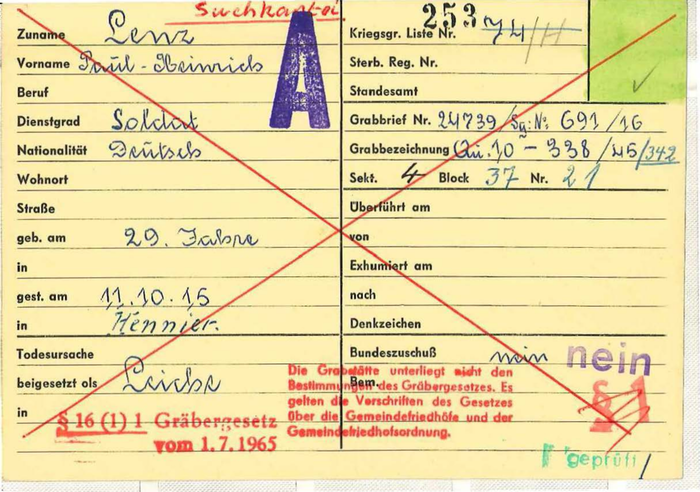 Suchkartei
Zuname Lenz
Vorname Paul-Heinrich
Beruf
Dienstgrad Soldat
Nationalität Deutsch
Wohnort
Straße
geb. am 29. Jahre
in
gest. am 11.10.15
in Hennier.
Todesursache
beigesetzt als Leiche
in
§ 16 (1) 1 Gräbergesetz
vom 1.7.1965
A
253
Kriegsgr. Liste Nr. 74/H
Sterb. Reg. Nr.
Standesamt
Grabbrief Nr. 24739/Sg: No: 691/16
Grabbezeichnung Qu. 10 - 338/45/342
Sekt. 4 Block 37 Nr. 21
Überführt am
von
Exhumiert am
nach
Denkzeichen
Bundeszuschuß nein nein
Bem.
Die Grabstätte unterliegt nicht den
Bestimmungen des Gräbergesetzes. Es
gelten die Vorschriften des Gesetzes
über die Gemeindefriedhöfe und der
Gemeindefriedhofsordnung.
§ 1
geprüft